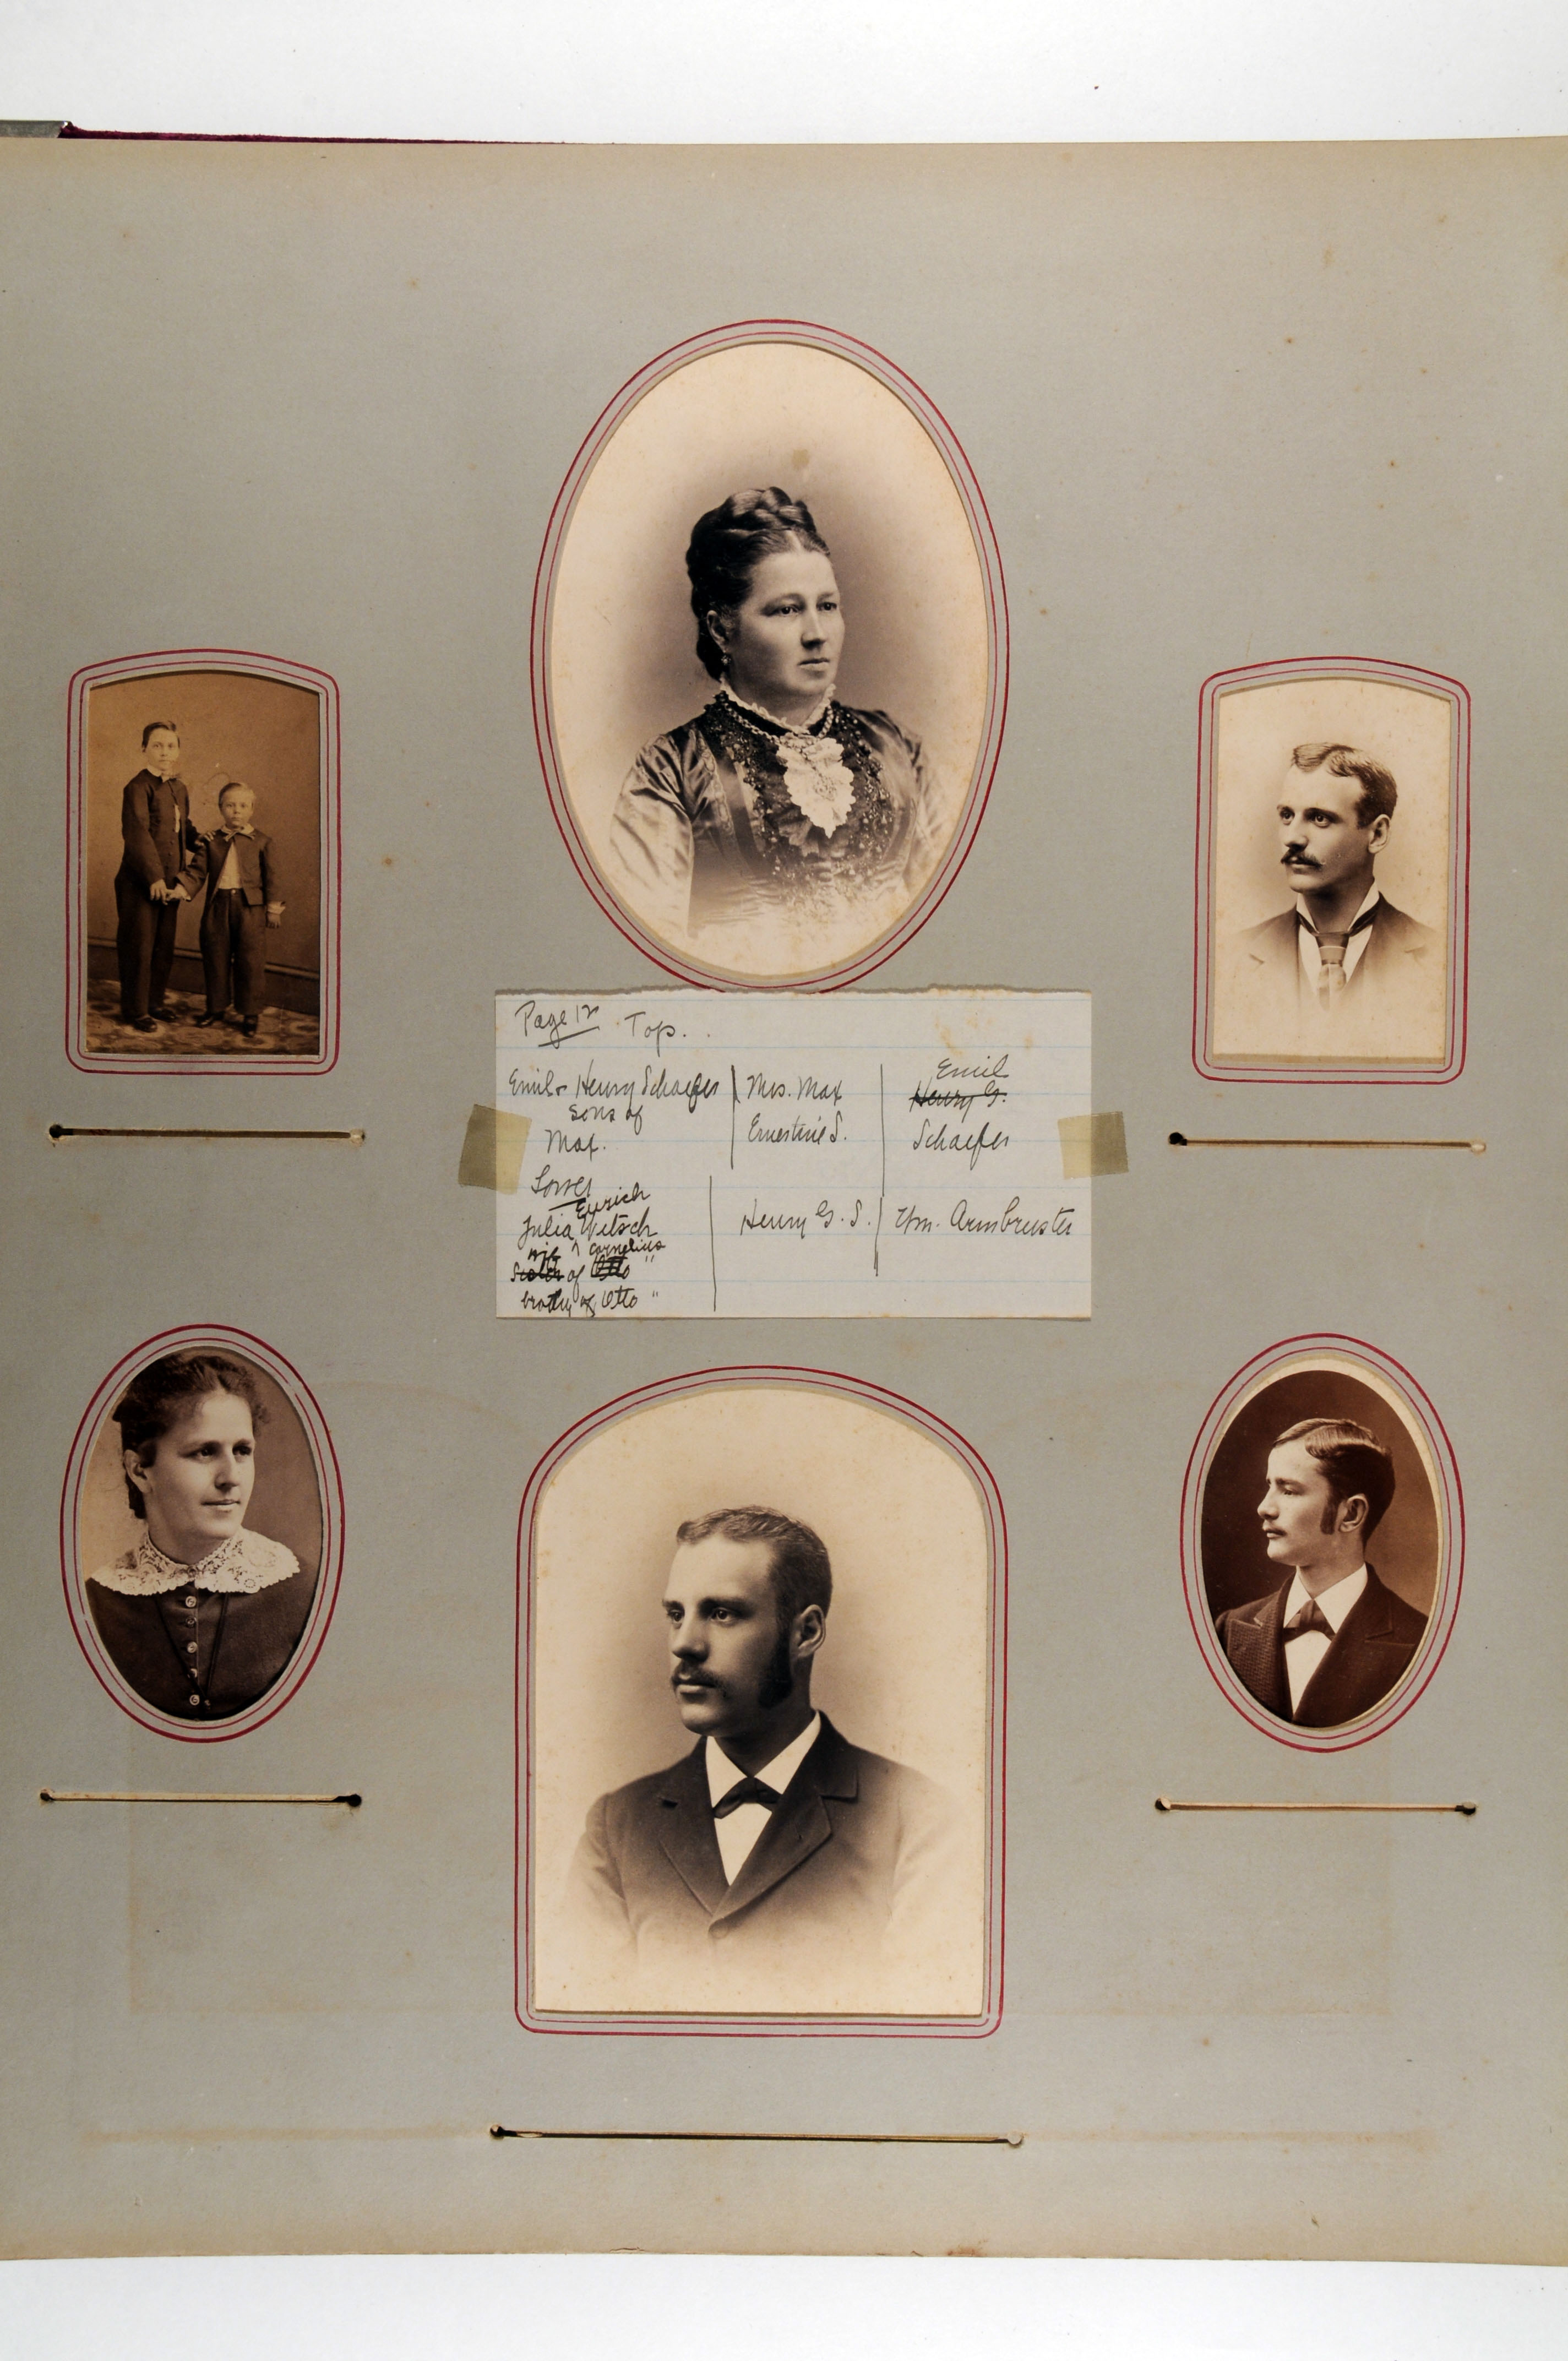 Page 12 Top.
Emil & Henry Schaefer
sons of
Max.
Mrs. Max
Ernestine S.
Emil
Henry G.
Schaefer
Lower
Emrich
Julia Vitsch
wife ^ Cornelius
Sister of Otto "
brother of Otto "
Henry G. S.
Wm. Armbruster